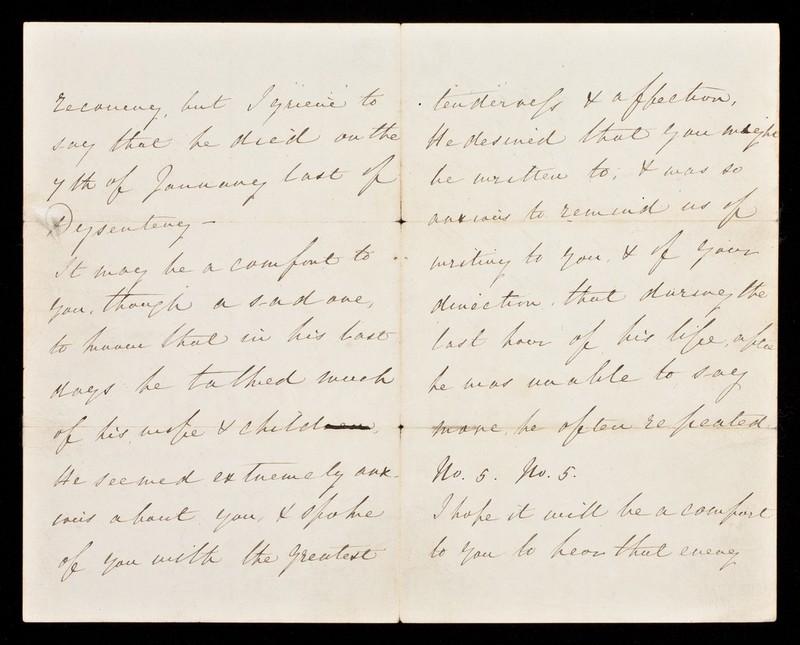 recovery, but I grieve to
say that he died on the
7th of January last of
Dysentery –
It may be a comfort to
you, though a sad one,
to know that in his last
days he talked much
of his wife & child
He seemed extremely anx-
ious about you, & spoke
of you with the greatest
tenderness & affection,
He desired that you might
be written to; & was so
anxious to remind us of
writing to you, & of your
direction, that during the
last hour of his life, after
he was unable to say
more, he often repeated
No. 5. No. 5.
I hope it will be a comfort
to you to hear that every